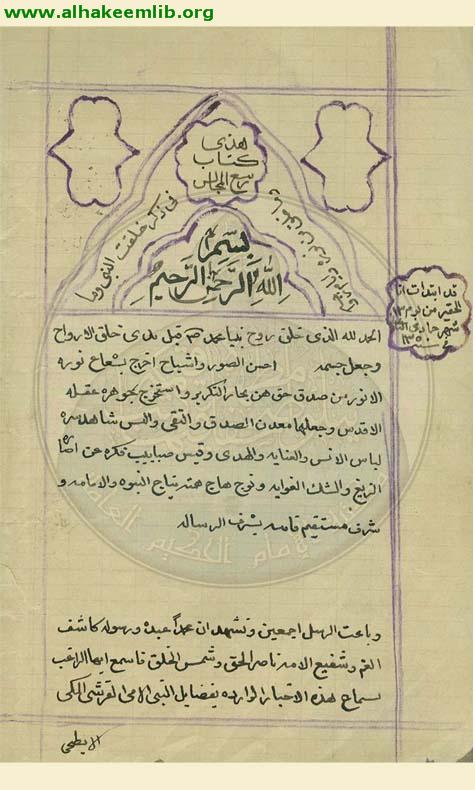 www.alhakeemlib.org
هذى
كتاب
ربيع المجالس
فى ذكر خلقت النبى وما
بسم
الله الرحمن الرحيم
قد ابتدات انا
الحقير من يوم ١٣
شهر جمادى
الحمد لله الذى خلق روح نبينا محمد ص قبل بدى خلق الارواح
وجعل جسمه احسن الصور واشباح اخرج بشعاع نوره
الانور من صدق حق من بحار التكرير واستخرج بجوهره عقله
الاقدس وجعلهما معدن الصدق والتقى والبس شاهد سره
لباس الانس والعنايه والهدى وقبس فكره عن
الزيغ والشك الغوايه وتوج هاج بتاج النبوه والامامه و
شرف مستقيم قامته بشرف الرساله
وباعث الرسل اجمعين ونشهد ان محمداً عبده ورسوله كاشف
الغم وشفيع الامه ناصر الحق وشمس الخلق فاسمع ايها الراغب
بسماع هذه الاخبار الوارده بفضايل النبى الامى القرشى المكى
الابطحى